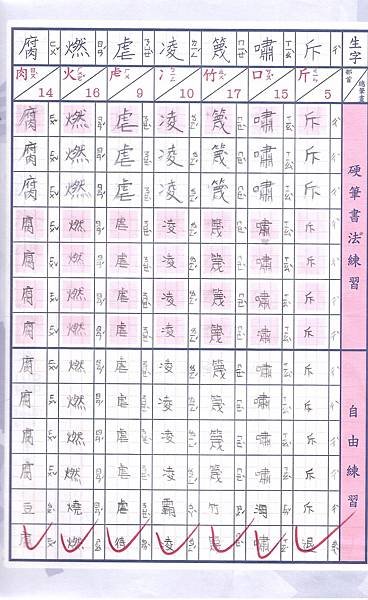 生字 部首 總筆畫 硬筆書法練習 自由練習
斥 斤 5 斥斥斥斥斥斥斥 斥斥斥斥斥退
嘯 口 15 嘯嘯嘯嘯嘯嘯嘯 嘯嘯嘯嘯海嘯
篾 竹 17 篾篾篾篾篾篾篾 篾篾篾篾竹篾
凌 冫 10 凌凌凌凌凌凌凌 凌凌凌凌霸凌
虐 虍 9 虐虐虐虐虐虐虐 虐虐虐虐虐待
燃 火 16 燃燃燃燃燃燃燃 燃燃燃燃燒燃
腐 肉 14 腐腐腐腐腐腐腐 腐腐腐腐豆腐